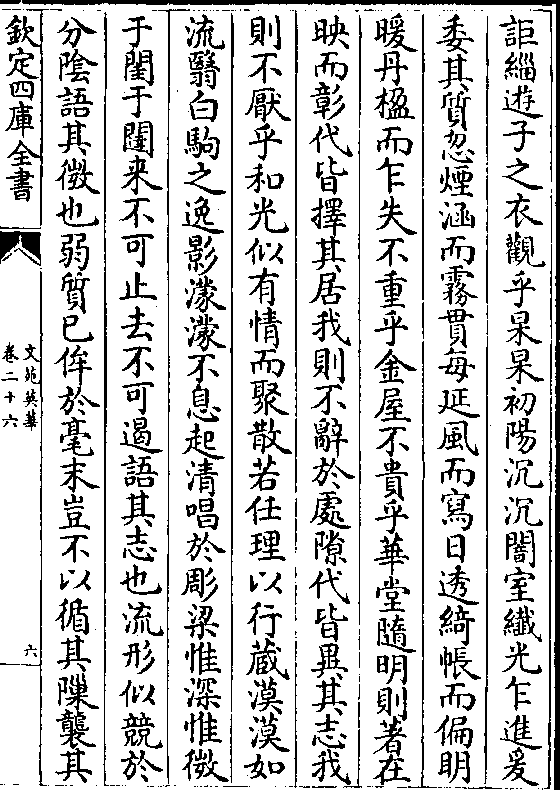 詎緇遊子之衣觀乎杲杲初陽沉沉闇室纖光乍進爰
委其質忽煙涵而霧貫每延風而寫日透綺帳而偏明
暖丹楹而乍失不重乎金屋不貴乎華堂隨明則著在
映而彰代皆擇其居我則不辭於處隙代皆異其志我
則不厭乎和光似有情而聚散若任理以行藏漠漠如
流翳白駒之逸影濛濛不息起清唱於彫梁惟深惟微
于閨于闥来不可止去不可遏語其志也流形似競於
分陰語其微也弱質已侔於毫末豈不以循其隟襲其
欽定四庫全書
文苑英華
卷二十六
六